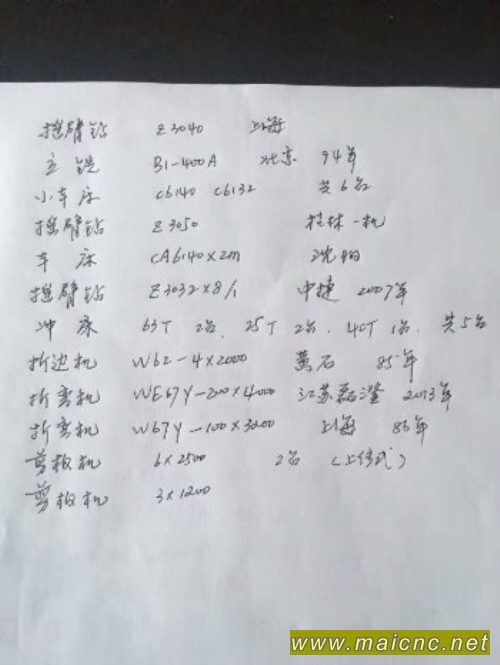 摇臂钻 Z3040 上海
立铣 B1-400A 北京 94年
小车床 C6140 C6132 共6台
摇臂钻 Z3050 桂林一机
车床 CA6140×2m 沈阳
摇臂钻 Z3032×8/1 中捷 2007年
冲床 63T 2台、25T 2台、40T 1台、共5台
折边机 W62-4×2000 黄石 85年
折弯机 WE67Y-200×4000 江苏 澄 2013年
折弯机 W67Y-100×3200 上海 86年
剪板机 6×2500 2台 (上传式)
剪板机 3×1200
www.maicnc.net